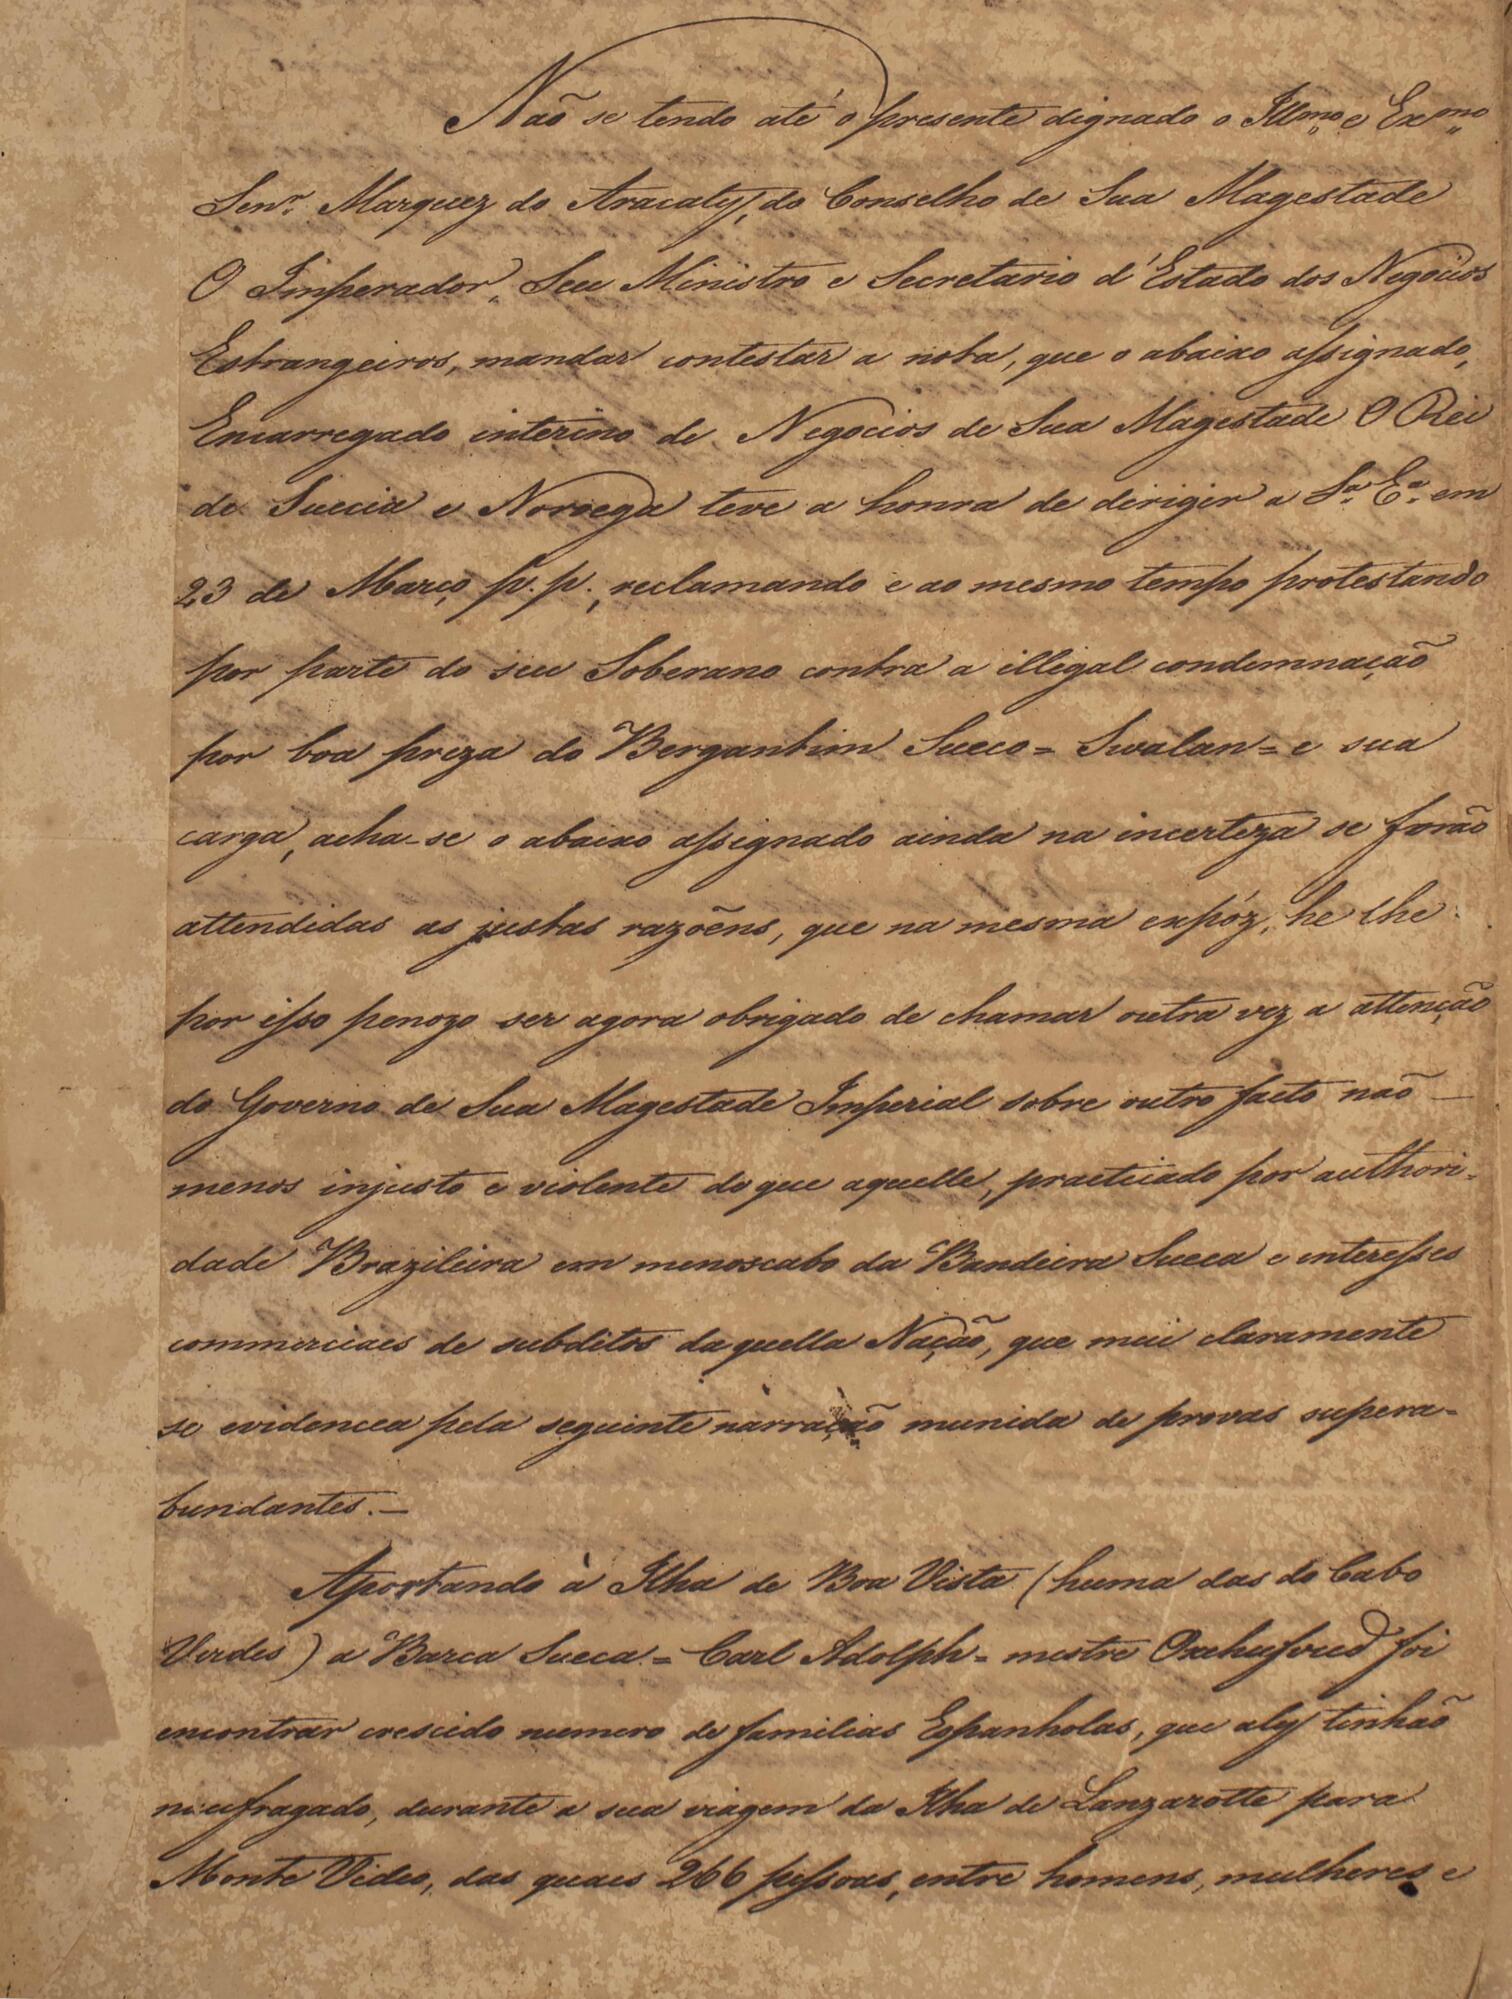 Não se tendo até o presente dignado o Illmo. e Exmo.
Senr. Marquez do Aracaty, do Conselho de Sua Magestade
O Imperador, Seu Ministro e Secretario d'Estado dos Negocios
Estrangeiros, mandar contestar a nota, que o abaixo assignado,
Encarregado interino de Negocios de Sua Magestade O Rei
de Suecia e Noroega teve a honra de dirigir a Sa. Ea. em
23 de Março p. p., reclamando e ao mesmo tempo protestando
por parte do seu Soberano contra a illegal condemnação
por boa preza do Bergantim Sueco = Swalan = e sua
carga, acha-se o abaixo assignado ainda na incerteza se forão
attendidas as justas razoẽns, que na mesma expóz, he lhe
por isso penozo ser agora obrigado de chamar outra vez a attenção
do Governo de Sua Magestade Imperial sobre outro facto não
menos injusto e violente do que aquelle, practicado por authori-
dade Brazileira em menoscabo da Bandeira Sueca e interesses
commerciaes de subditos daquella Nação, que mui claramente
se evidencea pela seguinte narração munida de provas supera-
bundantes. —
Aportando à Ilha de Boa Vista (huma das do Cabo
Verdes) a Barca Sueca = Carl Adolph = mestre foi
encontrar crescido numero de familias Espanholas, que aly tinhão
naufragado, durante a sua viagem da Ilha de Lanzarotte para
Monte Video, das quaes 266 pessoas, entre homens, mulheres e